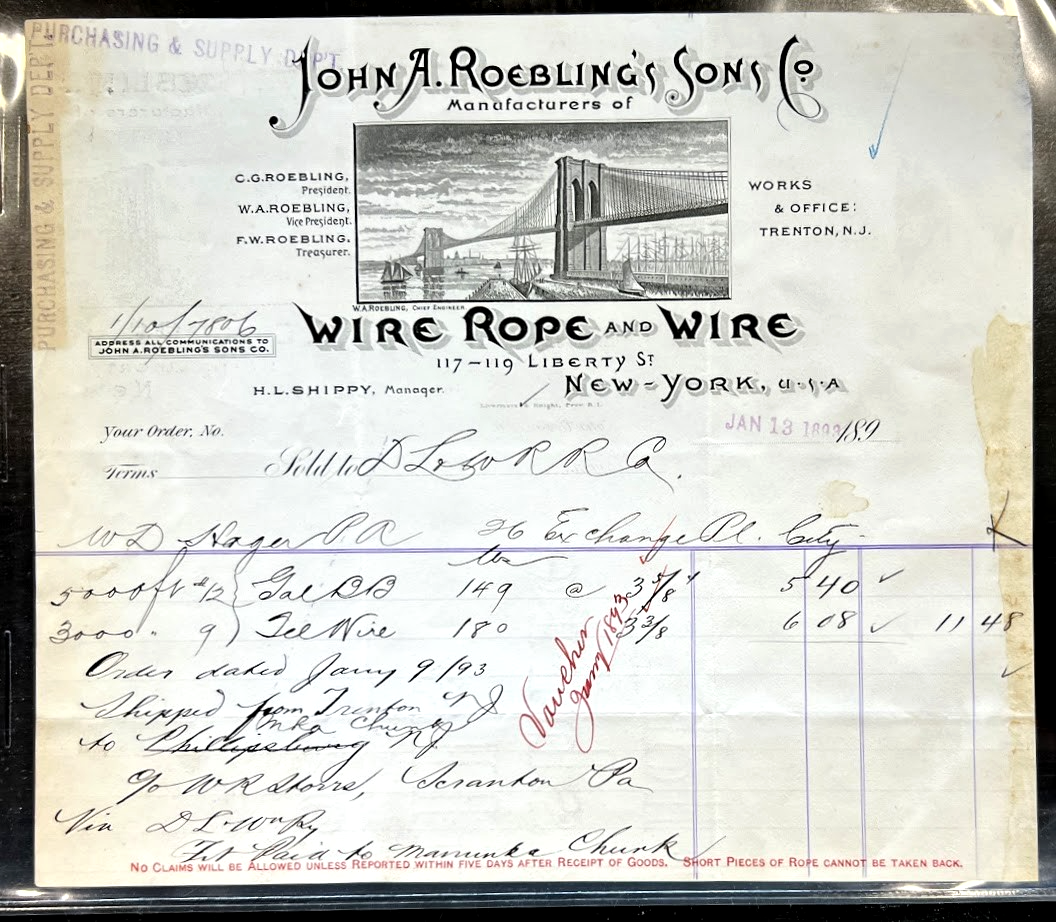 PURCHASING & SUPPLY DEP'T.
PURCHASING & SUPPLY DEP'T.
JOHN A. ROEBLING'S SONS Co
Manufacturers of
C.G. ROEBLING,
President.
W.A. ROEBLING,
Vice President.
F.W. ROEBLING.
Treasurer.
WORKS
& OFFICE:
TRENTON, N.J.
W.A. ROEBLING, CHIEF ENGINEER.
1/10/7806
WIRE ROPE AND WIRE
ADDRESS ALL COMMUNICATIONS TO
JOHN A. ROEBLING'S SONS CO.
117-119 LIBERTY ST
H.L. SHIPPY, Manager.
NEW-YORK, U.S.A
JAN 13 1893 189
Your Order, No.
Terms
Sold to D L & W R R Co.
W D Hager P. A 26 Exchange Pl. City
lbs
5000 ft #12 Gal BB 149 @ 3 5/8 5 40
3000 " 9 Tel Wire 180 3 3/8 6 08 11 48
Order dated Jany 9/93
Shipped from Trenton N J
Voucher
Jany 1893
to Phillipsburg N.J.
c/o W R Storrs, Scranton Pa
Via D L & W Ry
Frt Paid to Manunka Chunk
NO CLAIMS WILL BE ALLOWED UNLESS REPORTED WITHIN FIVE DAYS AFTER RECEIPT OF GOODS. SHORT PIECES OF ROPE CANNOT BE TAKEN BACK.